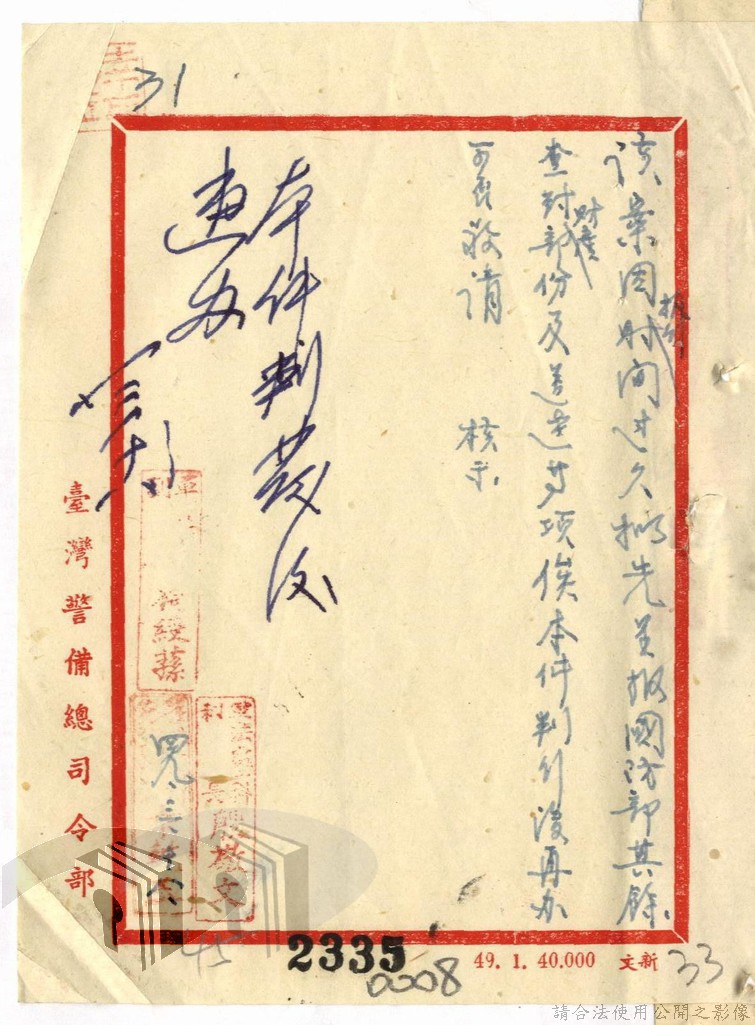 31
該案因執行时间过久擬先呈报國防部其餘
查封財產部份及送達等項俟本件判行後再办
可否敬请
核示
本件判發後
速办
臺灣警備總司令部
2335
0008
49. 1. 40,000
新文
33
請合法使用公開之影像